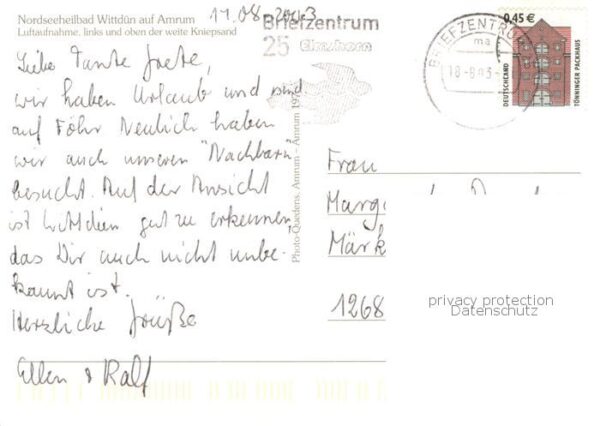 Nordseeheilbad Wittdün auf Amrum
Luftaufnahme, links und oben der weite Kniepsand
Liebe Tante Grete,
wir haben Urlaub und sind
auf Föhr Neulich haben
wir auch unseren "Nachbarn"
besucht. Auf der Ansicht
ist Wittdün gut zu erkennen,
das Dir auch nicht unbe-
kannt ist.
Herzliche Grüße
Ellen & Ralf
Photo-Quedens, Amrum - Amrum
Briefzentrum
25 Elmshorn
BRIEFZENTRUM
ma
0,45 €
DEUTSCHLAND
TÖNNINGER PACKHAUS
Frau
Marg
Märk
1268
privacy protection
Datenschutz